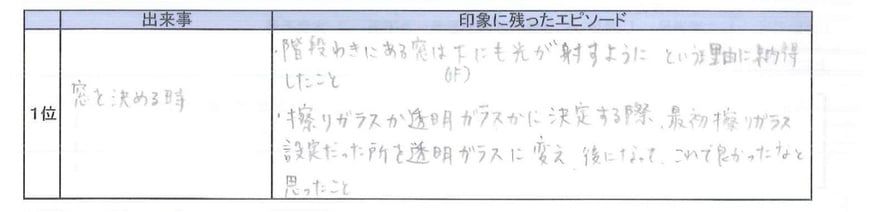 出来事 印象に残ったエピソード
1位
窓を決める時
・階段わきにある窓は下にも光が射すようにという理由に納得
(1F)
したこと
・擦りガラスか透明ガラスかに決定する際、最初擦りガラス
設定だった所を透明ガラスに変え、後になって、これで良かったなと
思ったこと